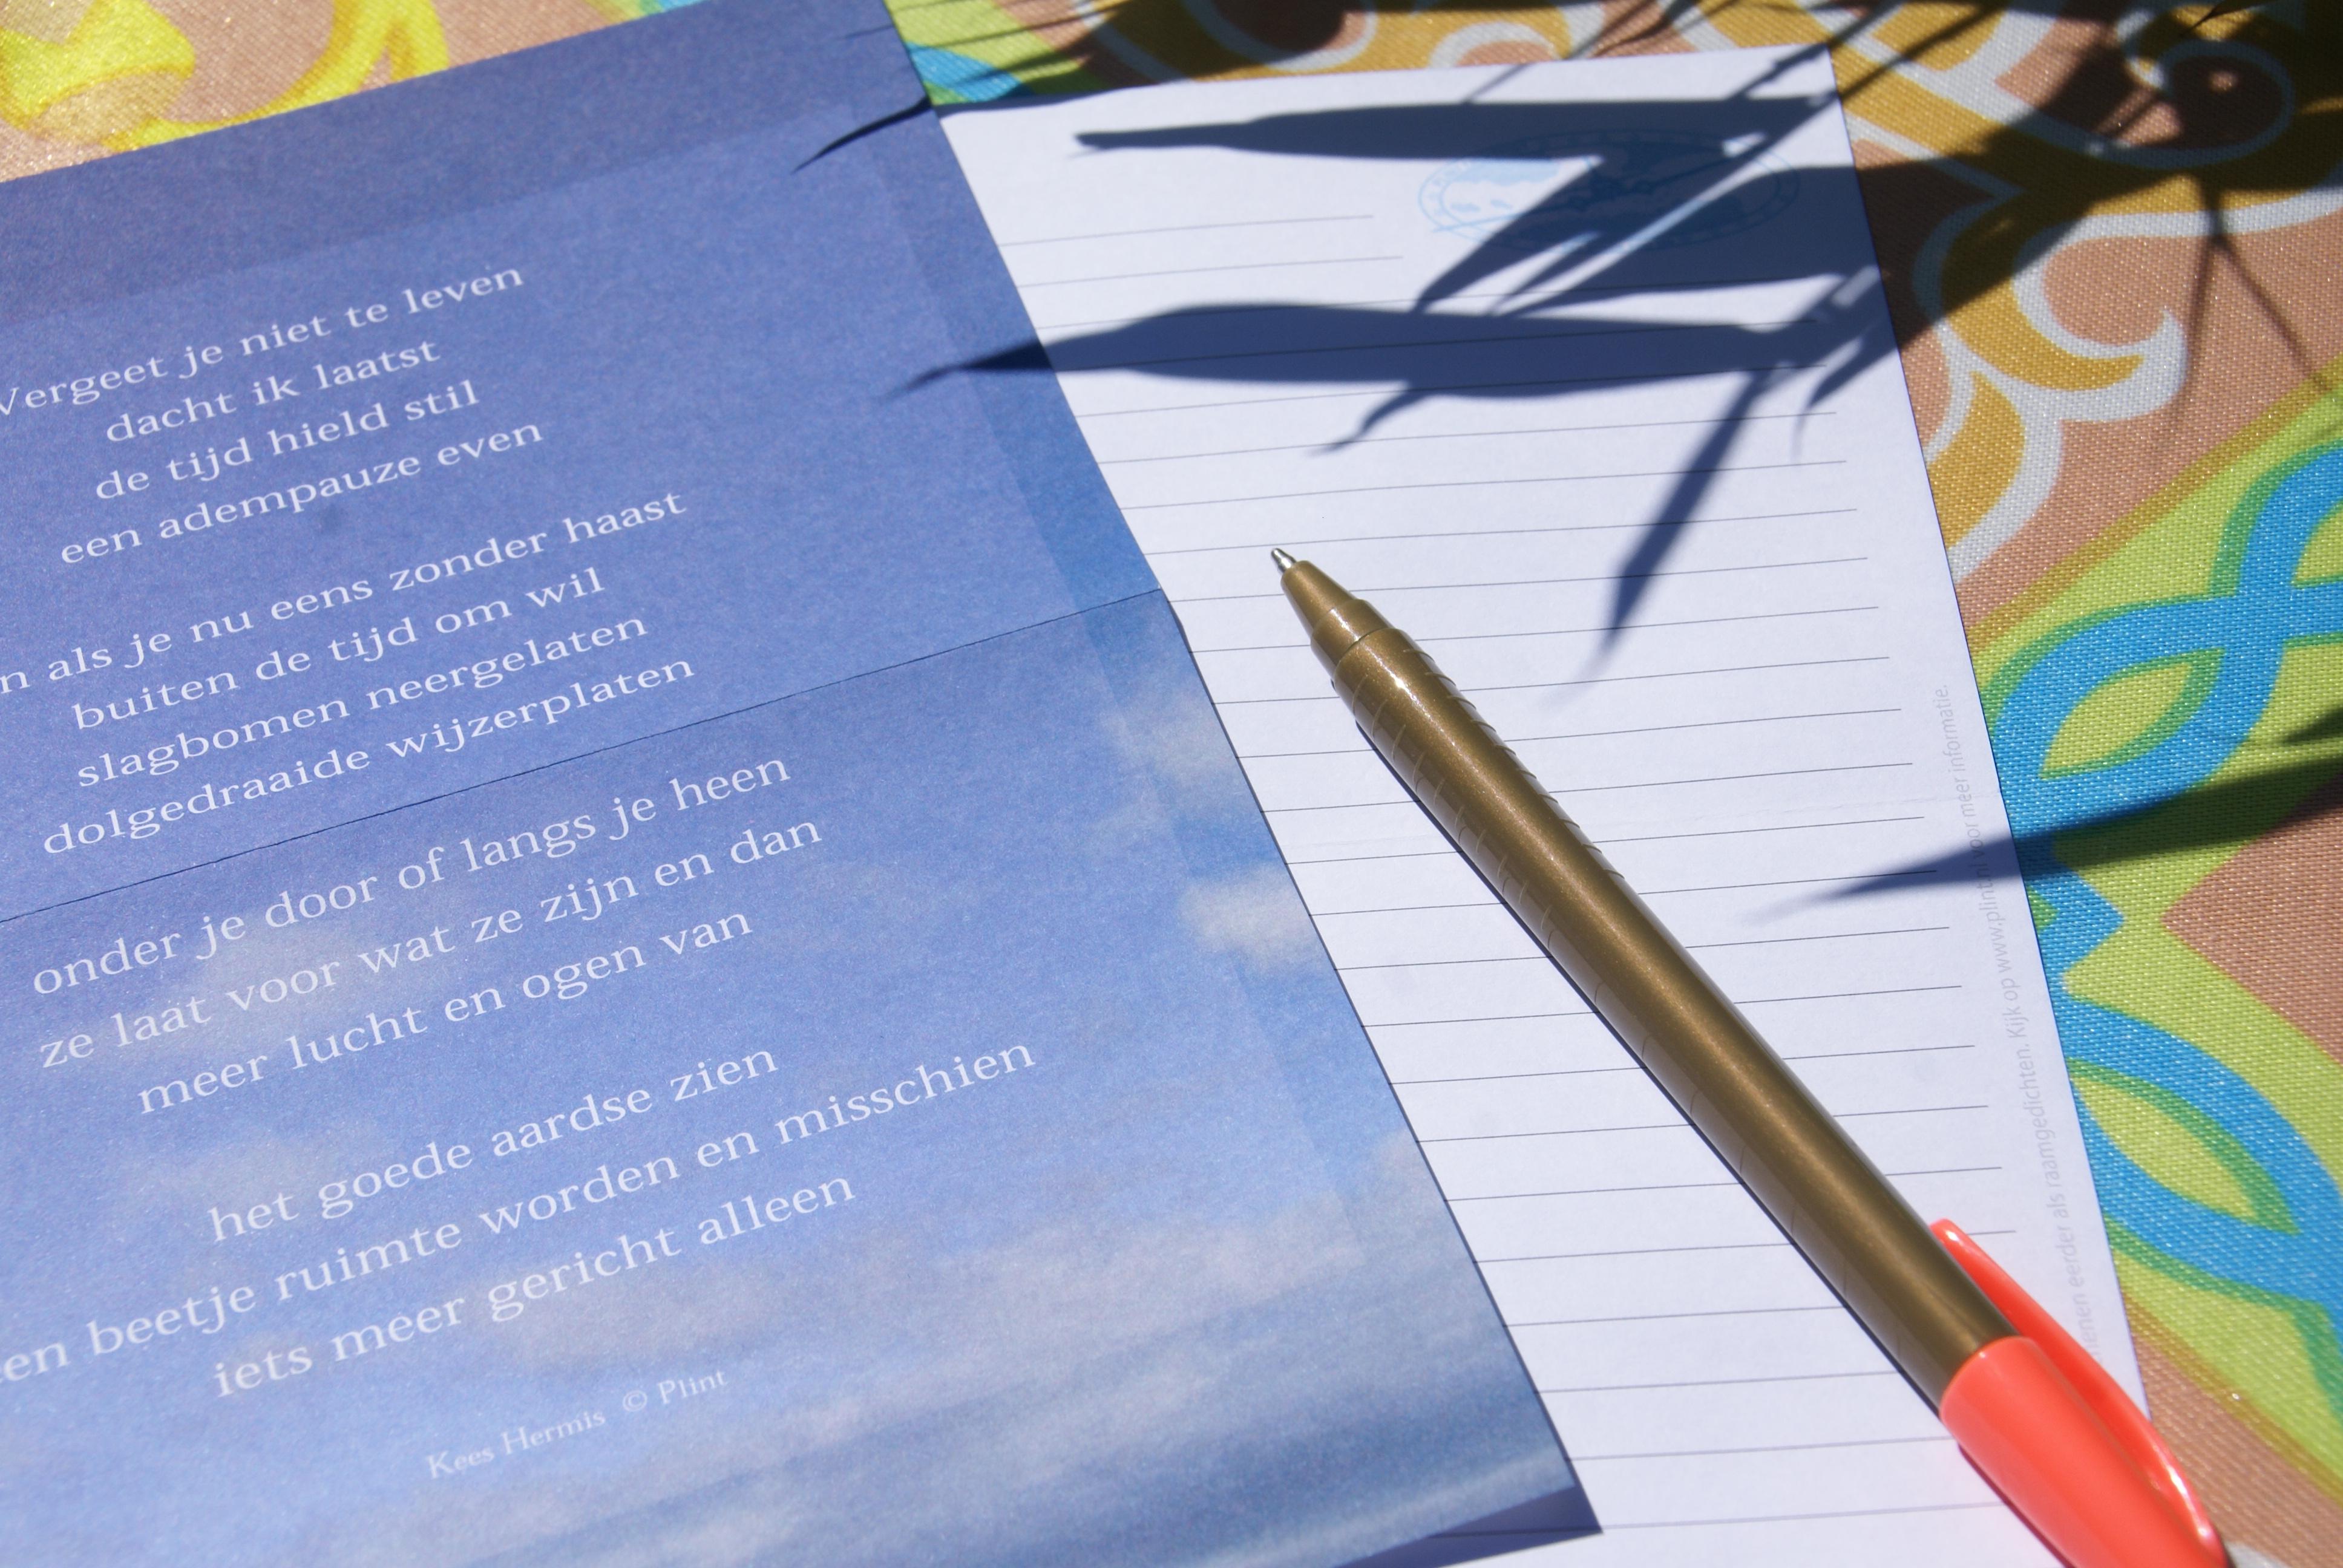 Vergeet je niet te leven
dacht ik laatst
de tijd hield stil
een adempauze even
n als je nu eens zonder haast
buiten de tijd om wil
slagbomen neergelaten
dolgedraaide wijzerplaten
onder je door of langs je heen
ze laat voor wat ze zijn en dan
meer lucht en ogen van
het goede aardse zien
en beetje ruimte worden en misschien
iets meer gericht alleen
Kees Hermis © Plint
eerder als raamgedichten. Kijk op www.plint.nl voor meer informatie.